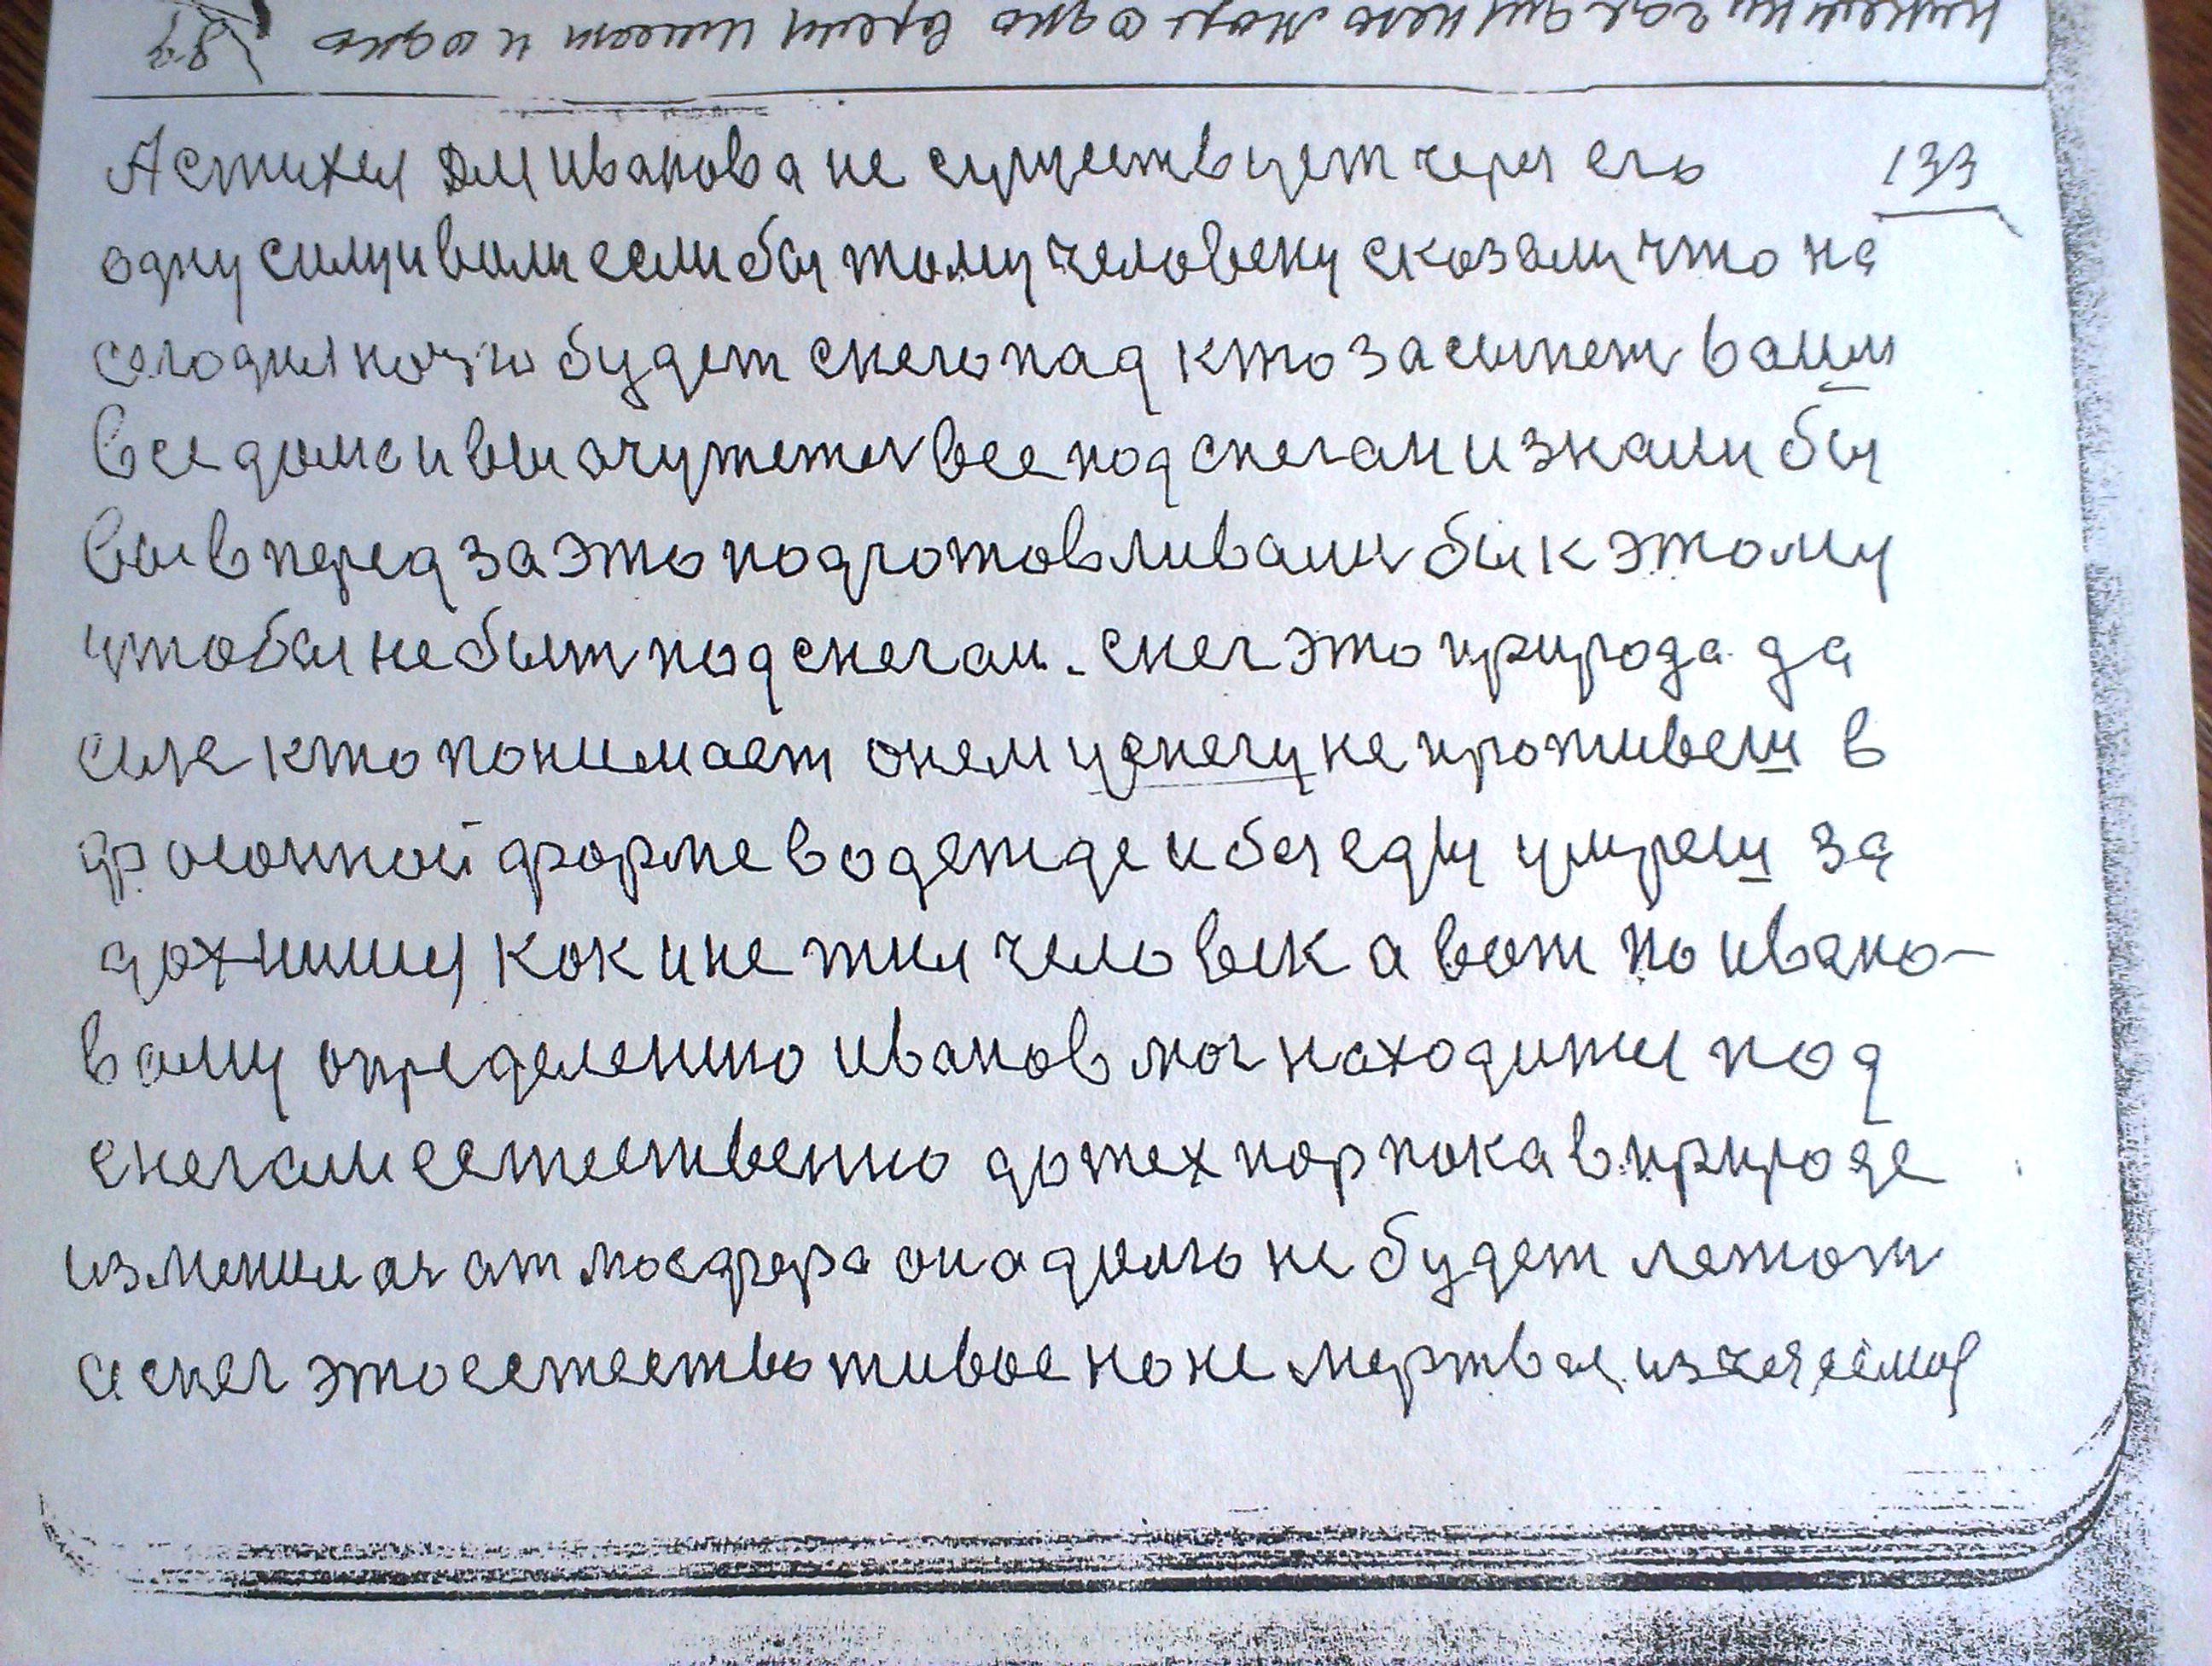 133
А стихея Для иванова не существует через его
одну силу и волю если бы тому человеку сказали что на
сегодня ночью будет снегопад кто засыпет ваши
все дома и вы очутетея все под снегам и знали бы
вы вперед за это подготовливали бы к этому
чтобы не быт под снегам. снег это природа да
еще кто понимает о нем у снегу не проживеш в
фасонной форме в одежде и без еды умреш за
дохнишся как и не жил человек а вот по ивано-
ваму определению иванов мог находится под
снегам естественно до тех пор пока в природе
изменилася атмосфера она долго не будет лежат
а снег это естество живое но не мертвае